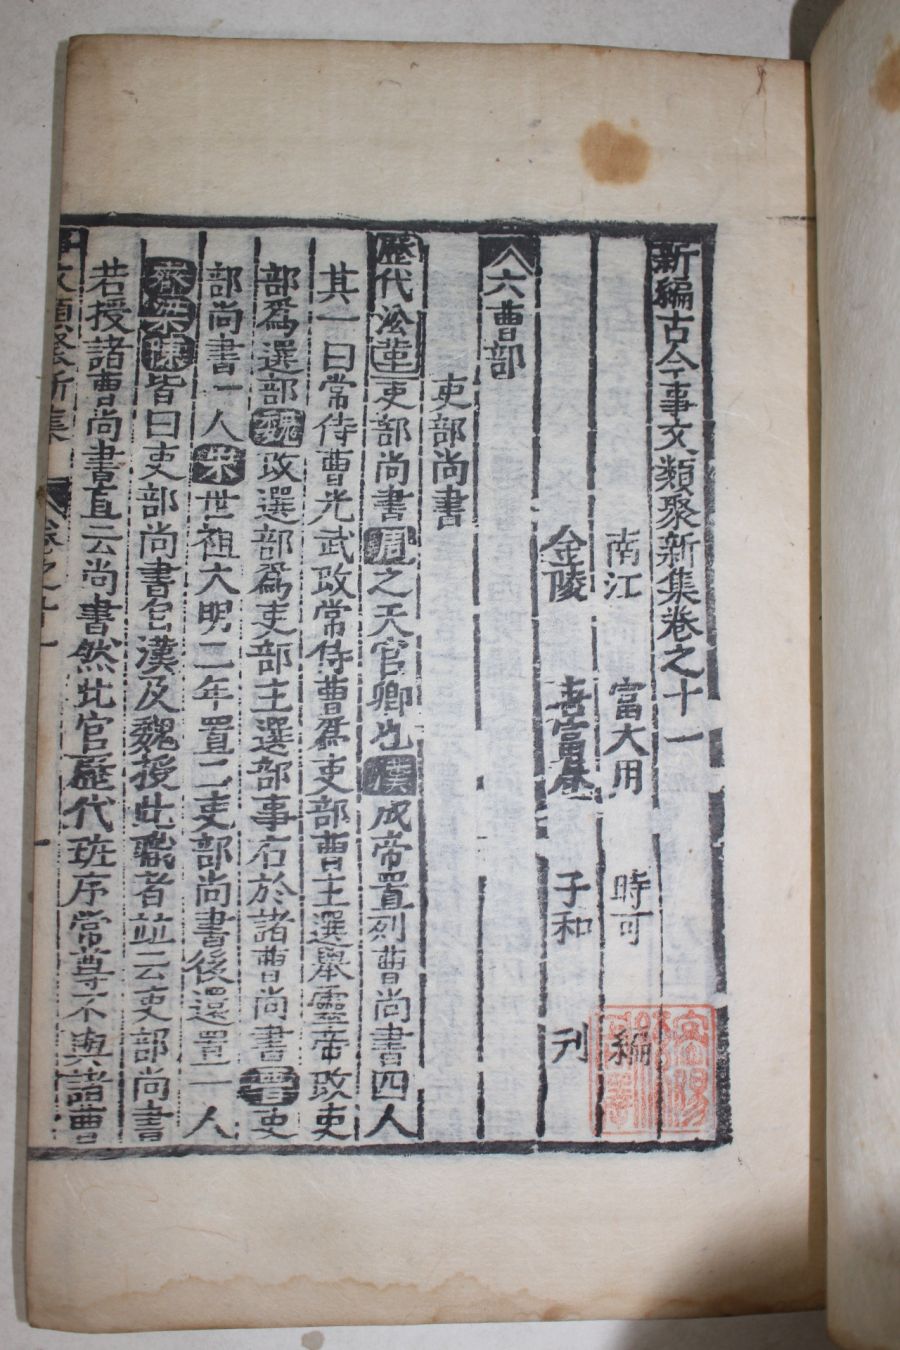 新編古今事文類聚新集卷之十一
南江 富大用 時可 編
金陵 唐富春 子和 刋
六曹部
吏部尚書
歷代沿革吏部尚書周之天官卿也漢成帝置列曹尚書四人
其一曰常侍曹光武攺常侍曹爲吏部曹主選舉靈帝攺吏
部爲選部魏攺選部爲吏部主選部事右於諸曹尚書晋吏
部尚書一人宋世祖大明二年置二吏部尚書後還置一人
齊梁陳皆曰吏部尚書自漢及魏授此職者並云吏部尚書
若授諸曹尚書直云尚書然此官歷代班序常尊不與諸曹
事文類聚新集 卷之十一